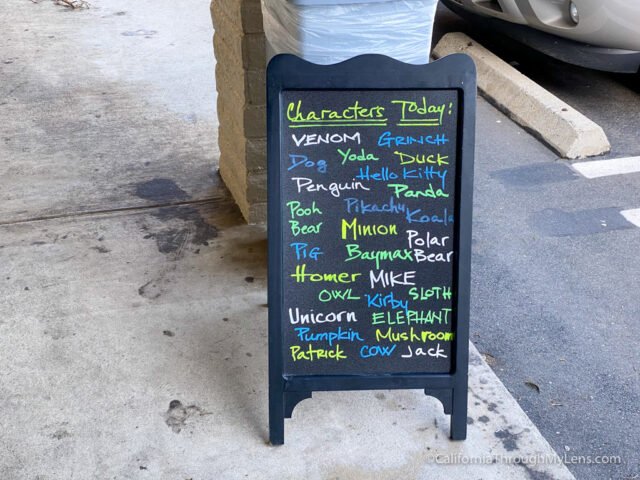 Characters Today:
VENOM GRINCH
Dog Yoda DUCK
Hello Kitty
Penguin Panda
Pooh Bear Pikachu Koala
Minion Polar Bear
PIG Baymax
Homer MIKE
OWL Kirby SLOTH
Unicorn ELEPHANT
Pumpkin Mushroom
Patrick COW Jack
©CaliforniaThroughMyLens.com